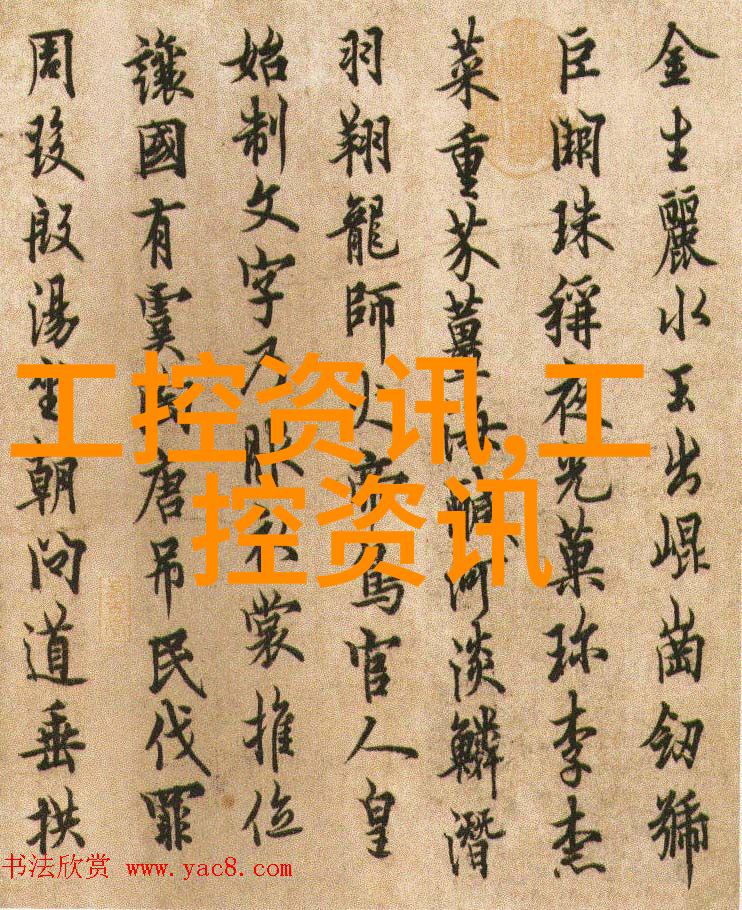 金生麗水玉出崐崗釼號
巨闕珠稱夜光菓珎李柰
菜重芥薑海醎河淡鱗潛
羽翔龍師火帝鳥官人皇
始制文字乃服衣裳推位
讓國有虞陶唐吊民伐罪
周發殷湯坐朝問道垂拱
工控资讯,工
控资讯
书法欣赏 www.yac8.com